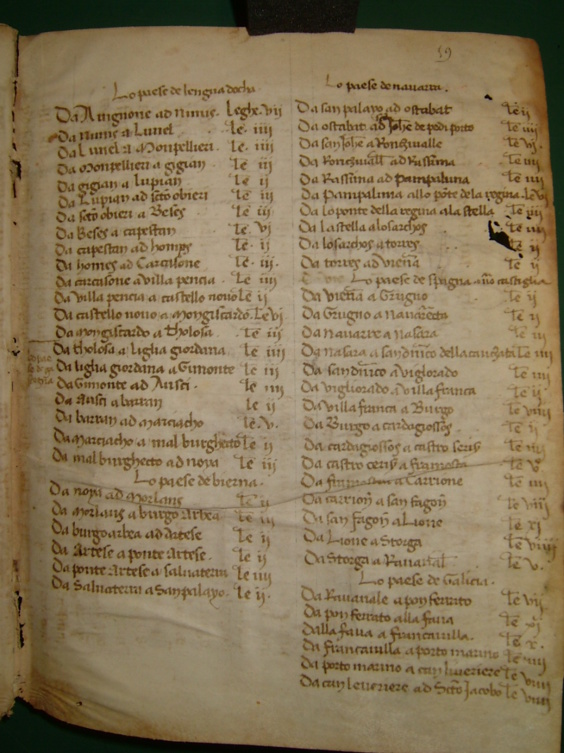 19
Lo paese de lengua docha
Da Avignone ad nimis. leghe. vii
Da nimis a Lunel le. iiii
Da Lunel a Monpellieri. le. iiii
Da Monpellieri a gigian le ii
Da gigian a Lupian le. ii
Da Lupian ad scto obieri le iii
Da scto obieri a Beses le. iii
Da Beses a capestan le. vi
Da capestan ad homps le. ii
Da homps ad Carcasone le. iii.
Da carcasone a villa pencia le. iiii
Da villa pencia a castello novo le ii
Da castello novo a Mongiscardo. le vi
Da mongiscardo a tholosa le iiii
Da tholosa a liglia giordana le iiii
Da liglia giordana a Gimonte le iii
Da Gimonte ad Ausci. le iiii
Da Ausci a barran le ii
Da barran ad Marciacho le. v.
Da Marciacho a mal burghetto le ii
Da mal burghetto ad noya le iii
Lo paese de bierna.
Da noya ad Morlans le ii
Da Morlans a burgo Arbea le iii
Da burgo arbea ad Artese le ii
Da Artese a ponte Artese. le ii
Da ponte Artese a salvaterra le iiii
Da Salvaterra a San palayo. le ii.
Lo paese de navarra.
Da san palayo ad ostabat le ii
Da ostabat ad Johe de pede porto le iiii
Da san Johe a Ronzivalle le vi.
Da Ronzivall ad le iiii
Da ad Pampaluna le iiii
Da Pampaluna allo pote de la regina. le v
Da lo ponte della regina a la stella le iiii
Da la stella a losarchos le iiii
Da losarchos a torres le ii
Da torres ad vieña le ii
Lo paese de spagna castiglia
Da vieña a Grugno le ii
Da Grugno a le ii
Da Navarre a Nasara le iii
Da nasara a sandinico della le iiii
Da sandinico a viglorado le iiii
Da vigliorado. a villa franca le ii
Da villa franca a Burgo le viiii
Da Burgo a le ii
Da a castro seris le iiii
Da castro ceris a fromosta le v
Da a Carrione le iiii
Da carrion a san fagon le viii
Da san fagon a Lione le xi
Da Lione a Storga le viiii
Da Storga a Ravanal le v.
Lo paese de Galicia.
Da Ravanale a pon ferrato le vii
Da pon ferrato alla fava le xi
Dalla fava a francavilla. le x.
Da francavilla a porto marino le iiii
Da porto marino a le viiii
Da ad Scto Jacobo le viiii